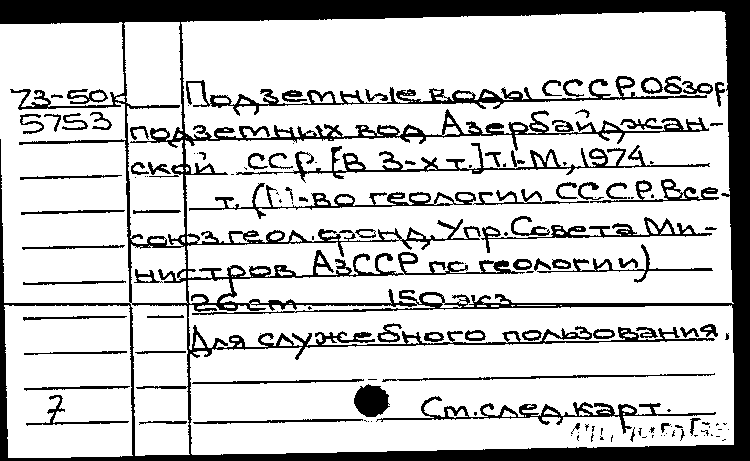 73-50к Подземные воды СССР. Обзор
5753 подземных вод Азербайджан-
ской ССР. [В 3-х т.] Т.1-М., 1974.
т. (М-во геологии СССР. Все-
союз. геол. фонд. Упр. Совета Ми-
нистров АзССР по геологии)
26 см. 150 экз
Для служебного пользования.
7 См. след. карт.